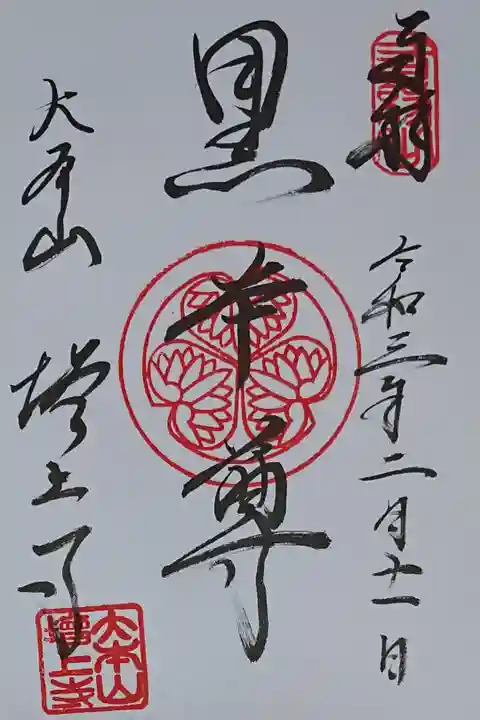 奉拝
令和三年二月十一日
黒本尊
大本山 増上寺
大本山
増上寺